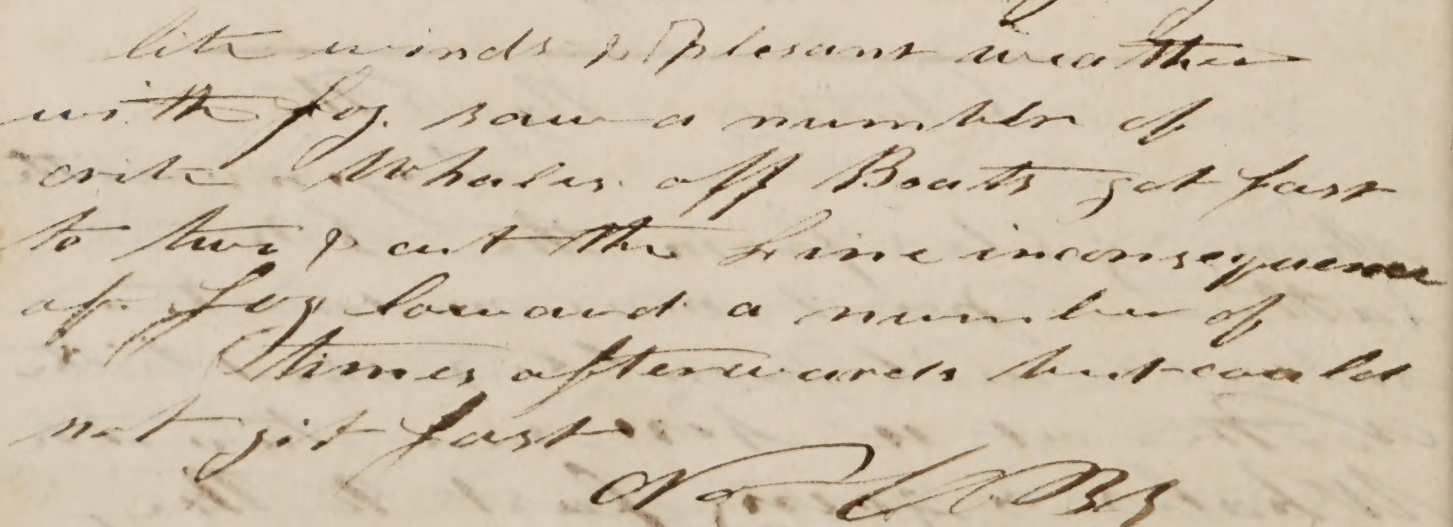 lite winds & plesant weather
with fog. saw a number of
rite Whales. off Boats got fast
to two & cut the Line inconsequence
of fog lowared a number of
times afterwards but could
not git fast
No